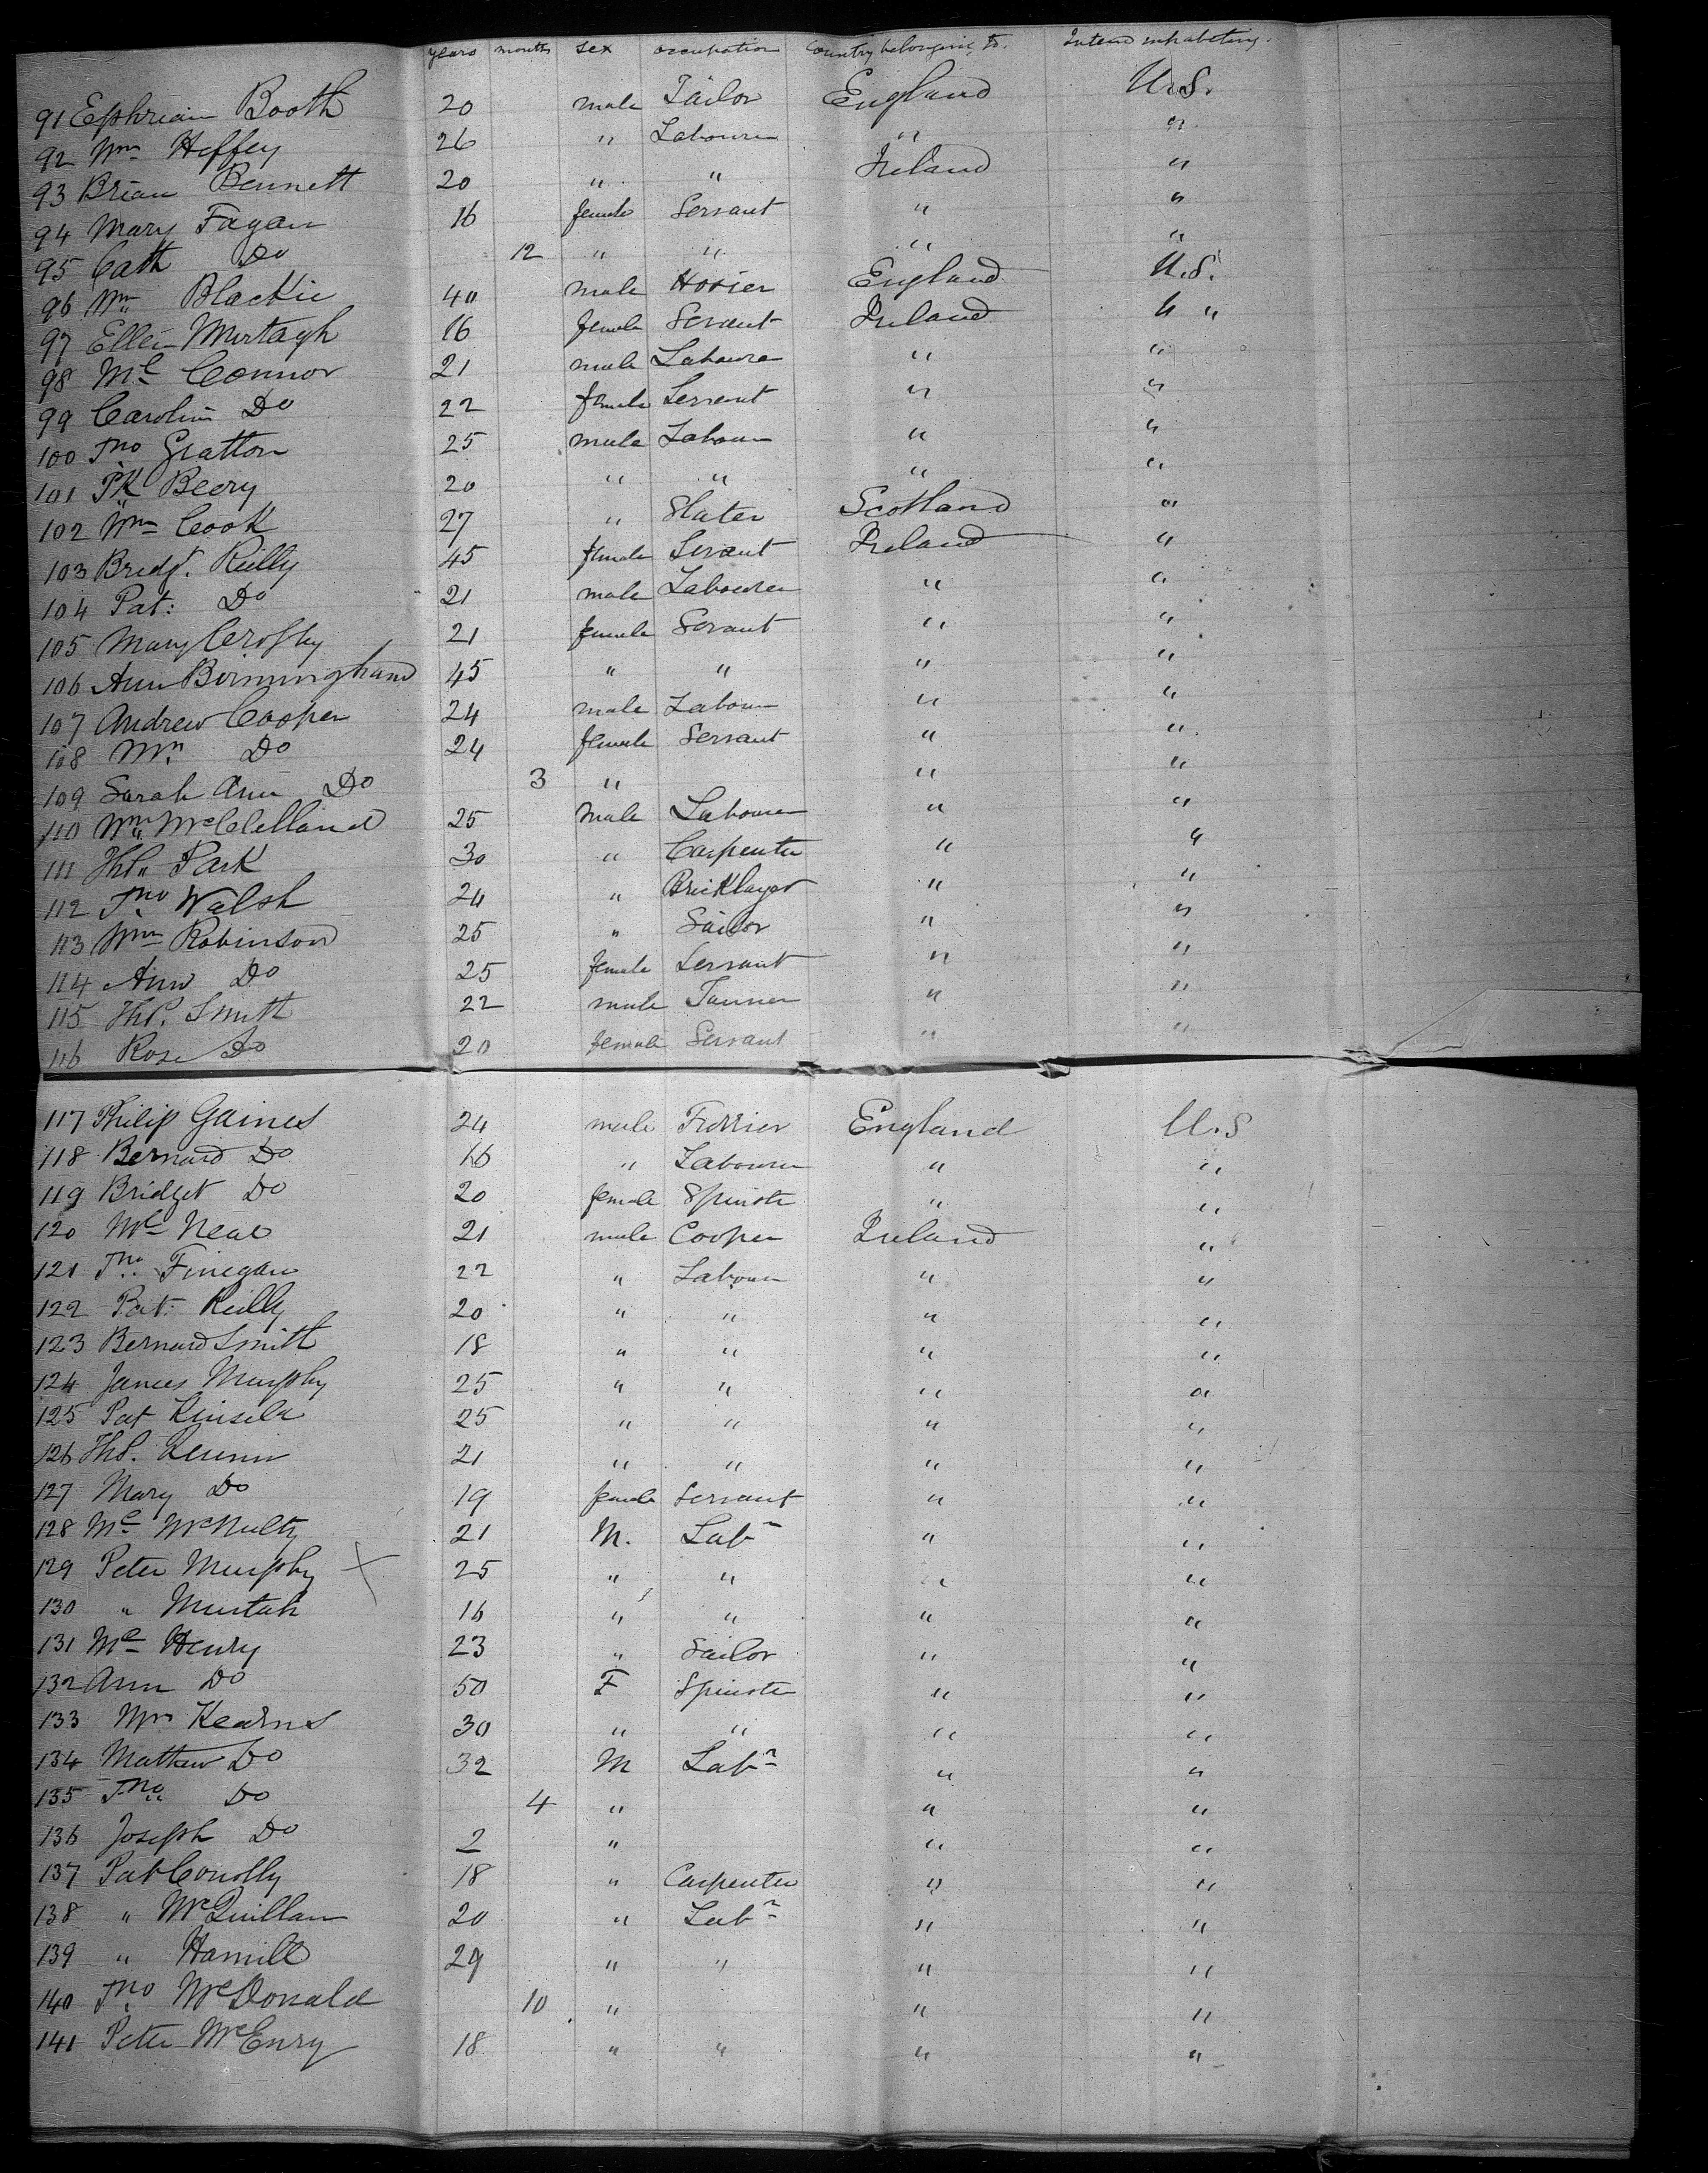 years months sex occupation Country belonging to. Intend inhabiting.
91 Ephriam Booth 20 male Tailor England U.S.
92 Wm Heffey 26 " Labourer " "
93 Brian Bennett 20 " " Ireland "
94 Mary Fagan 16 female Servant " "
95 Cath Do 12 " " " "
96 Wm Blackie 40 male Hosier England U.S.
97 Ellen Murtagh 16 female Servant Ireland " "
98 Ml Connor 21 male Labourer " "
99 Carolin Do 22 female Servant " "
100 Jno Gratton 25 male Labour " "
101 Pk Beery 20 " " " "
102 Wm Cook 27 " Slater Scotland "
103 Bridgt. Reilly 45 female Servant Ireland "
104 Pat: Do 21 male Labourer " "
105 Mary Crosby 21 female Servant " "
106 Ann Birmingham 45 " " " "
107 Andrew Cooper 24 male Labour " "
108 Mrs Do 24 female Servant " "
109 Sarah Ann Do 3 " " "
110 Wm McClelland 25 male Labourer " "
111 Ths Park 30 " Carpenter " "
112 Jno Walsh 24 " Bricklayer " "
113 Wm Robinson 25 " Sailor " "
114 Ann Do 25 female Servant " "
115 Ths. Smith 22 male Tanner " "
116 Rose Do 20 female Servant " "
117 Philip Gaines 24 male Furrier England U.S
118 Bernard Do 16 " Labourer " "
119 Bridget Do 20 female Spinster " "
120 Ml Neal 21 male Cooper Ireland "
121 Jno Finegan 22 " Labour " "
122 Pat: Reilly 20 " " " "
123 Bernard Smith 18 " " " "
124 James Murphy 25 " " " "
125 Pat Kinsela 25 " " " "
126 Ths. 21 " " " "
127 Mary Do 19 female Servant " "
128 Ml McNulty 21 M. Labr " "
129 Peter Murphy X 25 " " " "
130 " Murtah 16 " " " "
131 Ml Henry 23 " Sailor " "
132 Ann Do 50 F Spinster " "
133 Mrs Kearns 30 " " " "
134 Mathew Do 32 M Labr " "
135 Jno Do 4 " " "
136 Joseph Do 2 " " "
137 Pat Conolly 18 " Carpenter " "
138 " McQuillan 20 " Labr " "
139 " Hamill 29 " " " "
140 Jno McDonald 10 " " "
141 Peter McEnry 18 " " " "